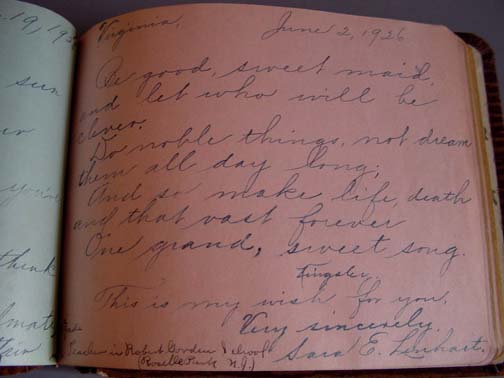 19, 193
sun
Virginia, June 2, 1926
Be good, sweet maid,
and let who will be
clever.
Do noble things, not dream
them all day long;
And so make life, death
and that vast forever
One grand, sweet song.
Kingsley.
This is my wish for you.
Very sincerely,
Sara E.
Teacher in Robert Gordon School
(Roselle Park N.J.)